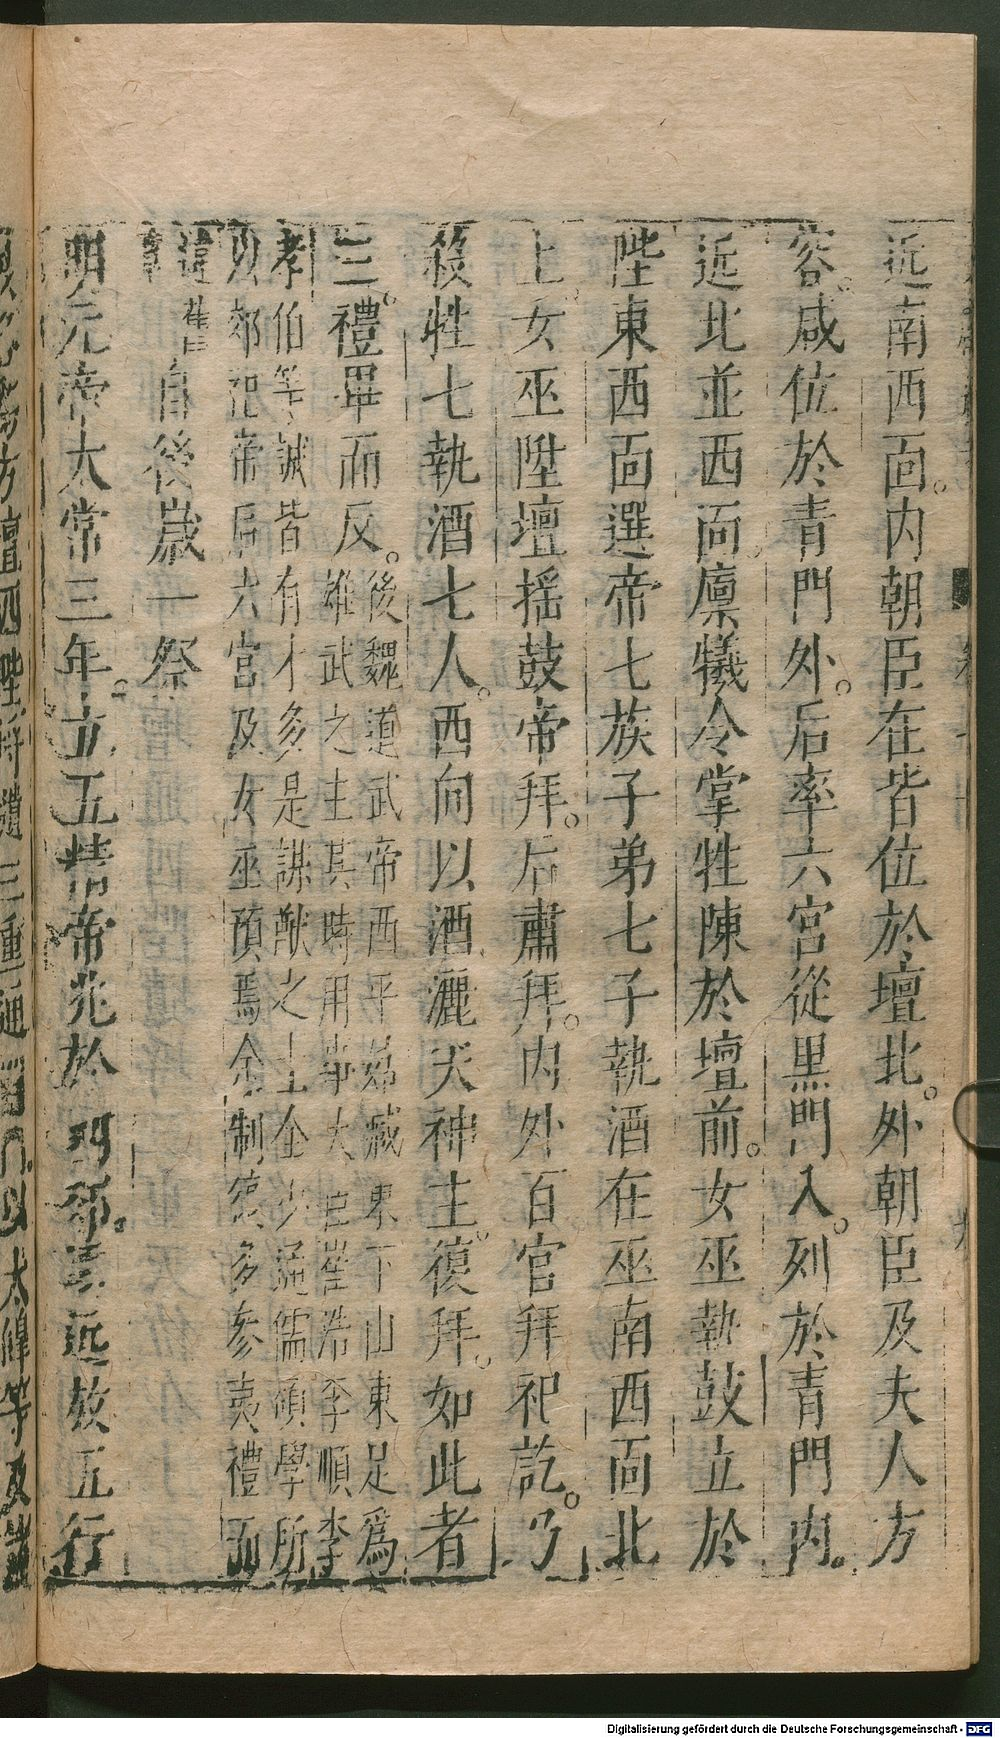 近南西面。内朝臣在皆位於壇北。外朝臣及夫人方
容。咸位於青門外。后率六宮從黒門入。列於青門内。
近北並西面。廩犧令掌牲陳於壇前。女巫執鼓立於
陛東西面選帝七族子弟七子執酒在巫南西面北
上。女巫陞壇揺鼓帝拜。后肅拜。内外百官拜祀訖。乃
殺牲七執酒七人。西向以酒灑天神主。復拜。如此者
三。禮畢而反。後魏道武帝西平姑臧東下山東足爲
雄武之主其時用事大臣崔浩李順李
孝伯等誠皆有才多是謀猷之士全少通儒碩學所
以郊祀帝后六宮及女巫預焉余制復多参夷禮而
違舊
章 自後歳一祭
明元帝太常三年。立五精帝兆於四郊。遠近放五行
方壇四陛埒壝三重通四門。以太皥等及諸
Digitalisierung gefördert durch die Deutsche Forschungsgemeinschaft - DFG